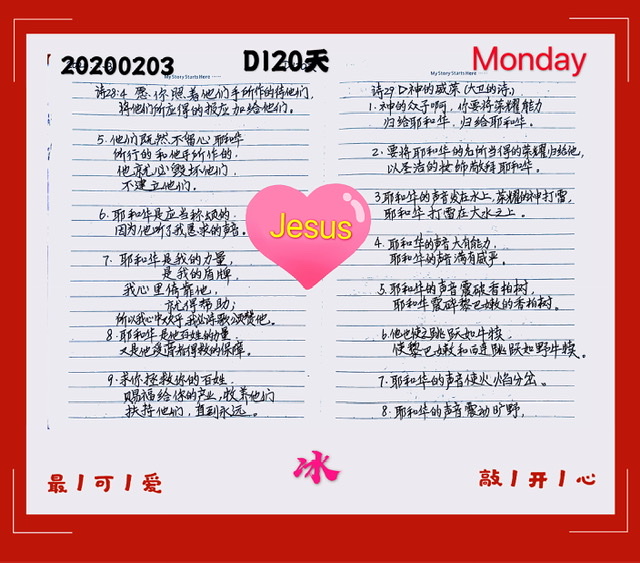 20200203
D120天
Monday
My Story Starts Here
诗28:4 愿你照着他们手所作的待他们,
将他们所应得的报应加给他们。
5. 他们既然不留心耶和华
所行的和他手所作的,
他就必毁坏他们,
不建立他们。
6. 耶和华是应当称颂的,
因为他听了我恳求的声音。
7. 耶和华是我的力量,
是我的盾牌,
我心里倚靠他,
就得帮助;
所以我心中欢乐,我必诗歌颂赞他。
8. 耶和华是他百姓的力量,
又是他受膏者得救的保障。
9. 求你拯救你的百姓,
赐福给你的产业,牧养他们
扶持他们,直到永远。
My Story Starts Here
诗29 神的威荣(大卫的诗)
1. 神的众子啊,你要将荣耀能力
归给耶和华,归给耶和华。
2. 要将耶和华的名所当得的荣耀归给他,
以圣洁的妆饰敬拜耶和华。
3 耶和华的声音发在水上,荣耀的神打雷,
耶和华打雷在大水之上。
4. 耶和华的声音大有能力,
耶和华的声音满有威严。
5. 耶和华的声音震破香柏树,
耶和华震碎黎巴嫩的香柏树。
6. 他也使之跳跃如牛犊,
使黎巴嫩和西连跳跃如野牛犊。
7. 耶和华的声音使火焰分岔。
8. 耶和华的声音震动旷野,
Jesus
最 | 可 | 爱
冰
敲 | 开 | 心